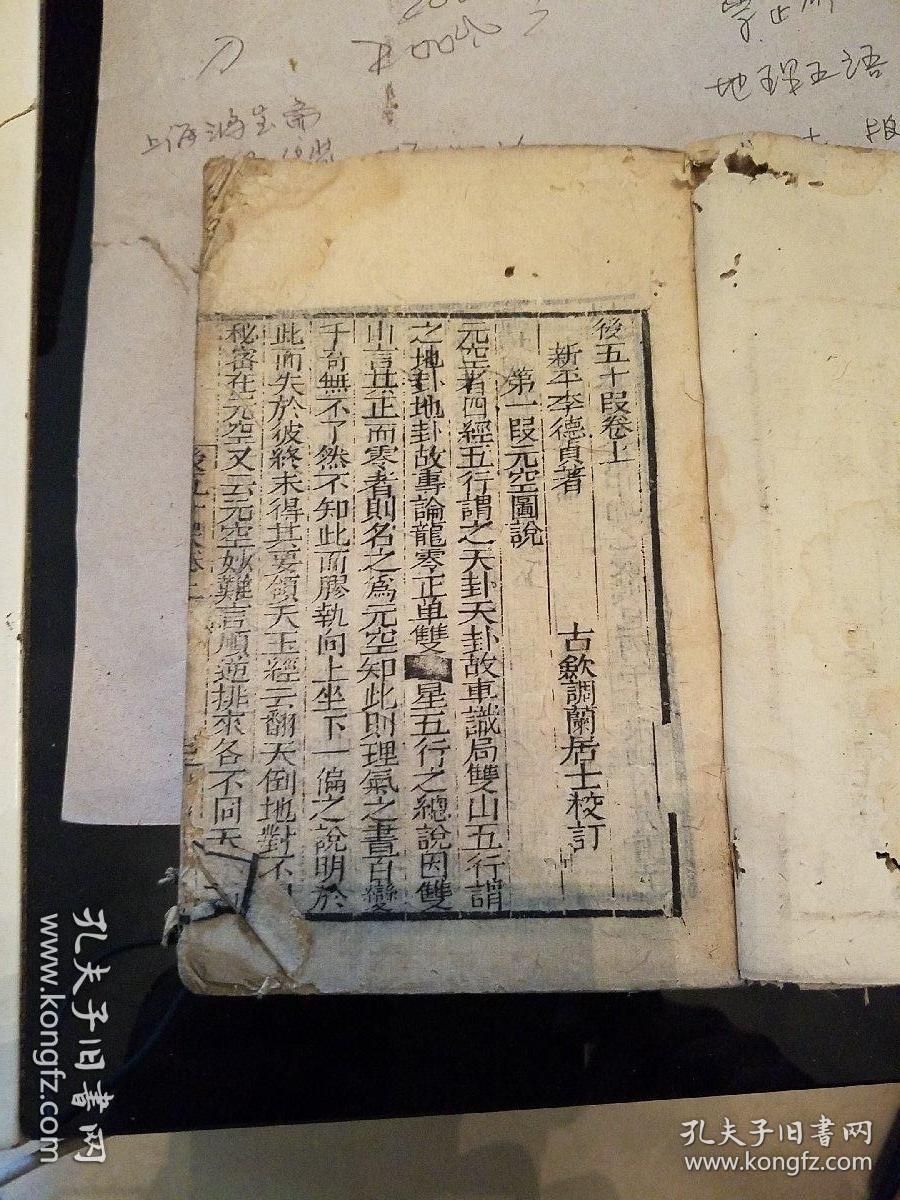 後五十段卷上
新平李德貞著
古歙調蘭居士校訂
第一段元空圖說
元空者四經五行謂之天卦天卦故專識局雙山五行謂
之地卦地卦故專論龍零正单雙 星五行之總說因雙
山言其正而零者則名之爲元空知此則理氣之書百變
千奇無不了然不知此而膠執向上坐下一偏之說明於
此而失於彼終未得其要領天玉經云翻天倒地對不
秘密在元空又云元空妙難言順逆排來各不同天
地理五语
上海
孔夫子旧书网
www.kongfz.com
孔夫子旧书网
www.kongfz.com